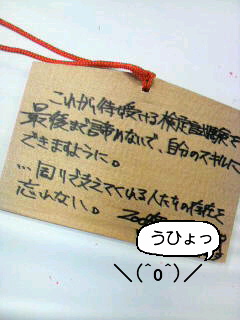 これから待ち受ける検定試験で
最後まで諦めないで、自分のスキルに
できますように。
…周りで支えてくれる人たちの存在を
忘れない。
うひょっ
＼(^o^)／